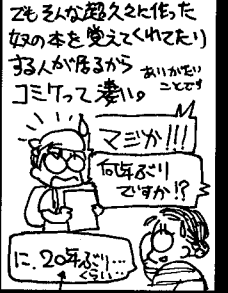 でもそんな超久々に作った
奴の本を覚えてくれてたり
する人が居るから
コミケって凄い。
ありがたい
ことです
マジか!!!
何年ぶり
ですか!?
に、20年ぶり…
くらい…